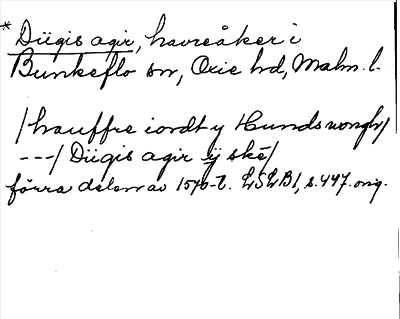 * Diigis agir, havreåker i
Bunkeflo sn, Oxie hd, Malm. l.
/hauffre iordt y Hundswongh/
---/ Diigis agir ÿ skē/
förra delen av 1570-t. LSLB1, s.447. orig.